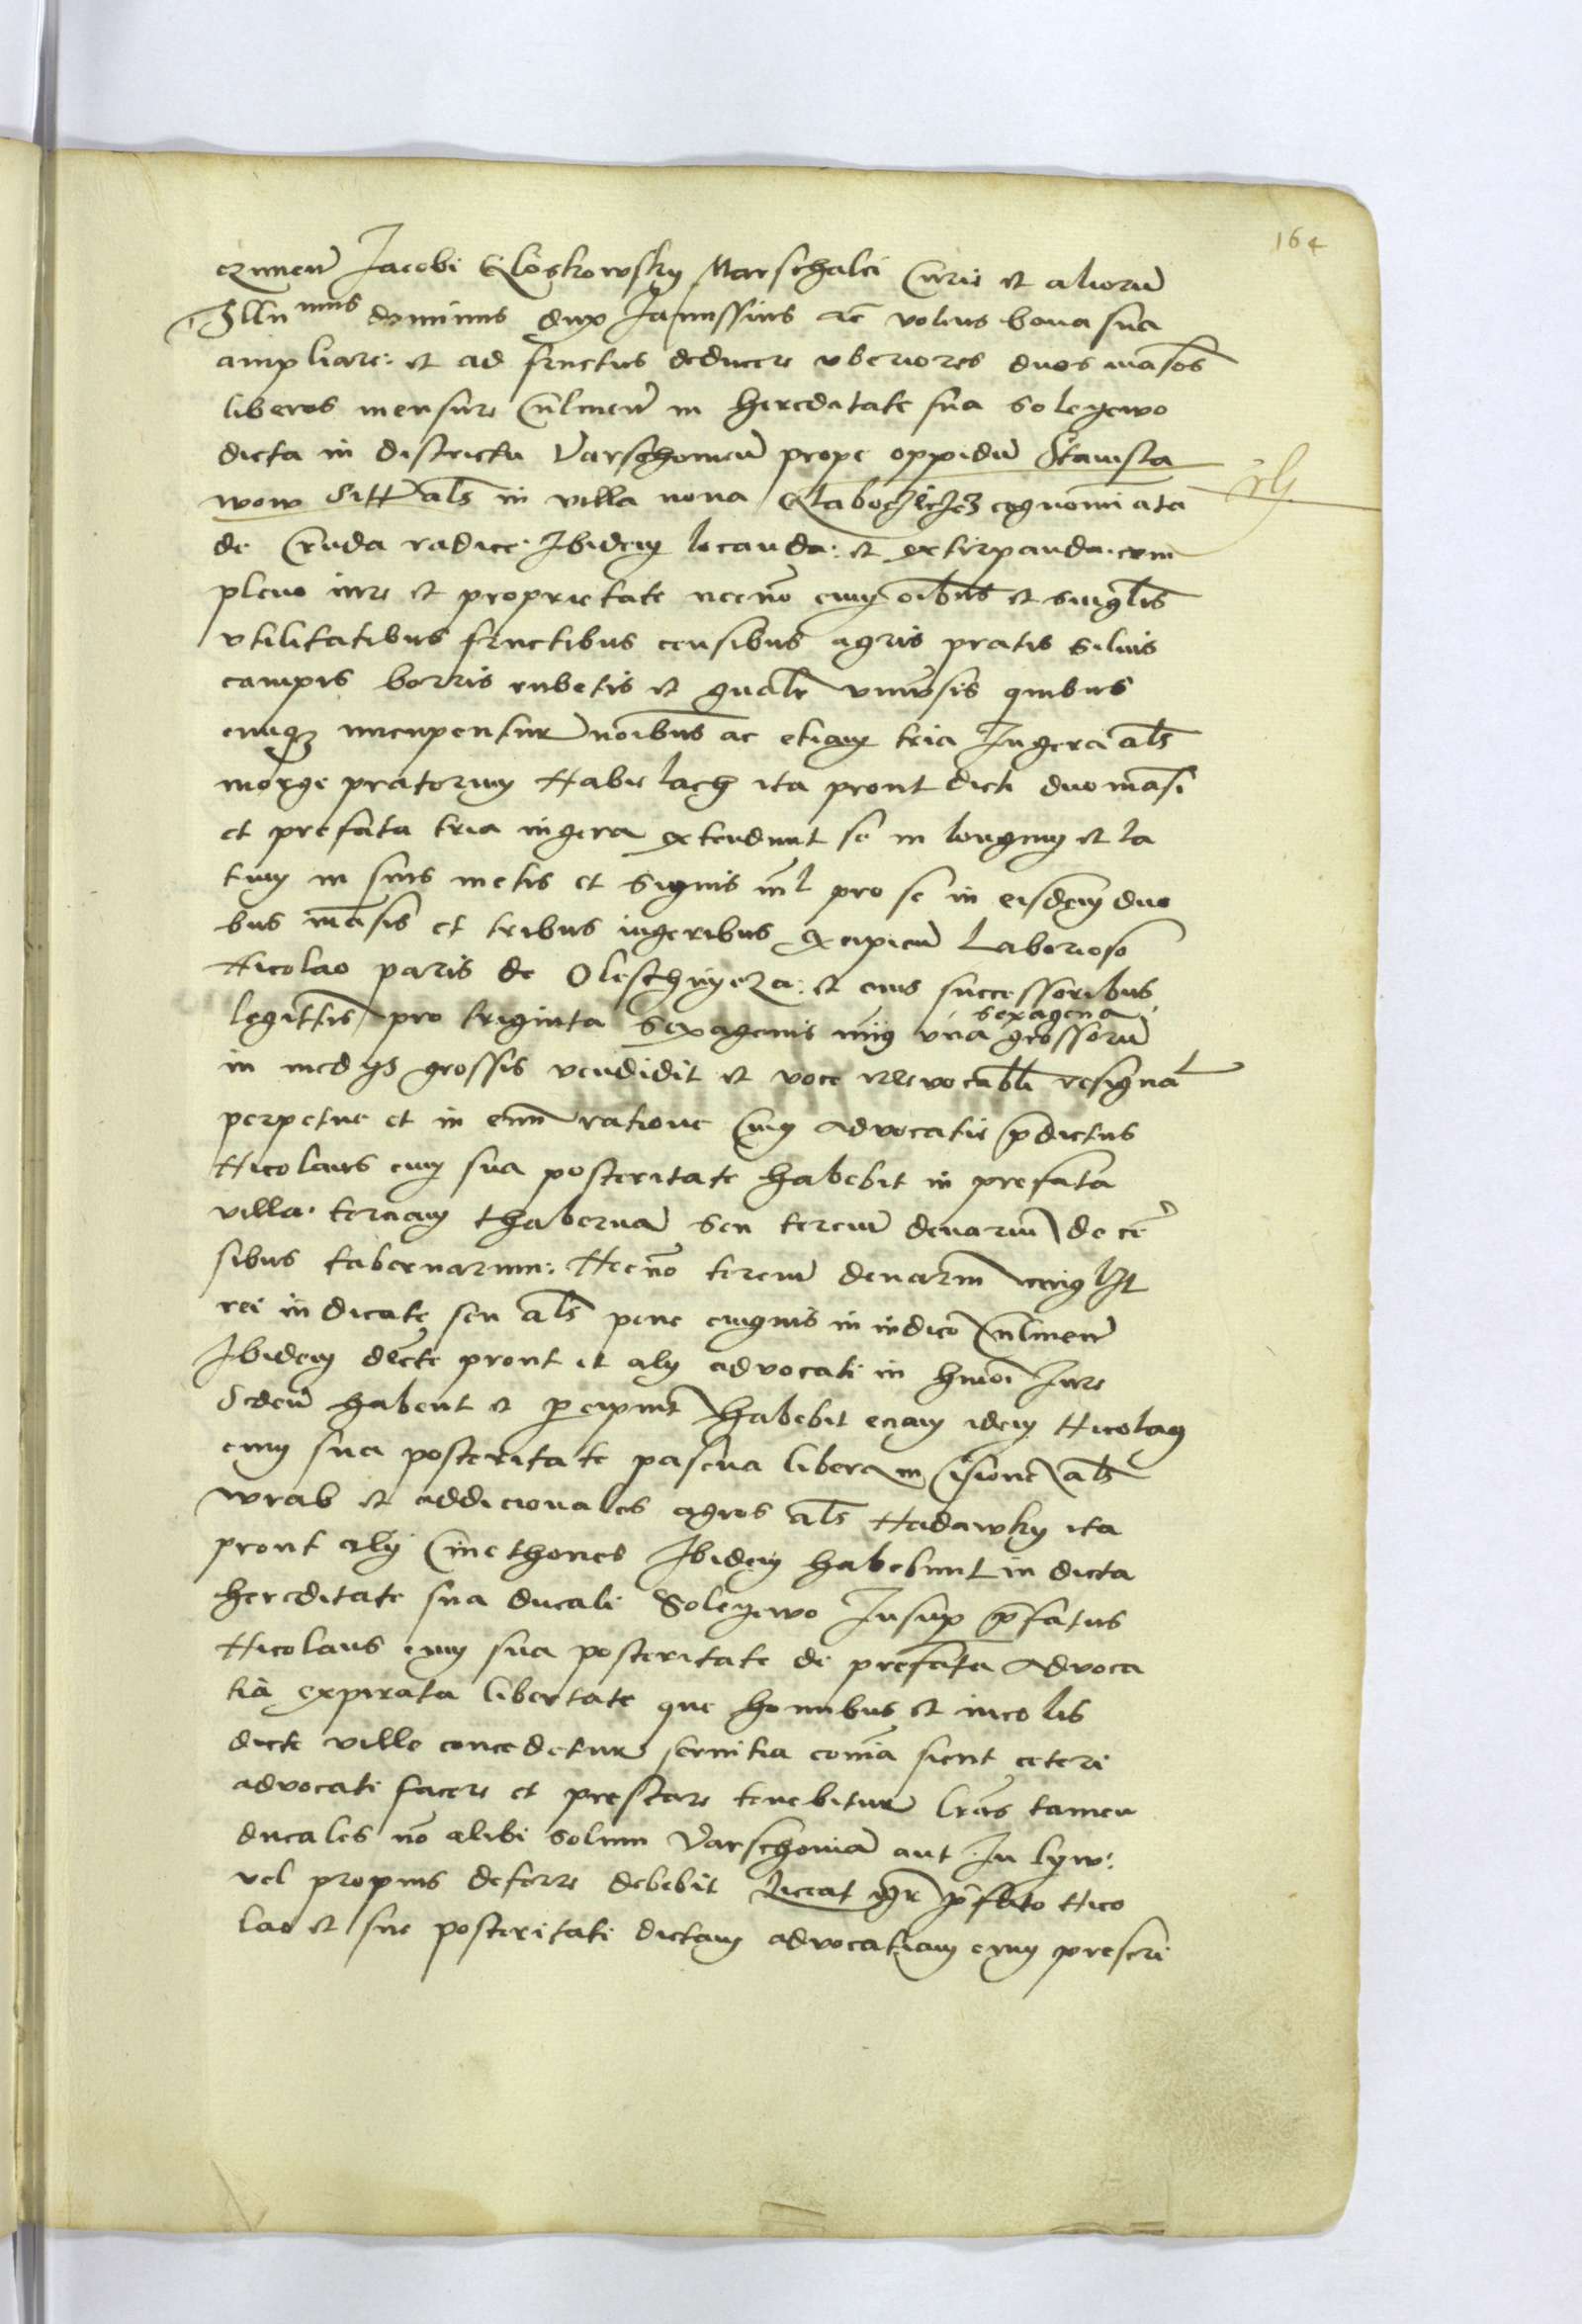 164
czinen̄ Jacobi Gloskowsky Marschalci Curie et aliorū
Illu mus dominus dux Janussius ac volens bona sua
ampliare: et ad fructus deducere vberiores duos māsos
liberos mensure Culmen̄ in hereditate sua Solegewo
dicta in districtu Varschouien̄ prope oppidū Stanisla
wow Sitt̄ al̄s in villa noua cognominata
de Cruda radice Ibidem locanda: et extirpanda cum
pleno iure et proprietate necnō cum oībus et singl̄is
vtilitatibus fructibus censibus agris pratis siluis
campis borris rubetis et gnal̄r vniūsis quibus
cunqʒ nuncupentur noībus ac etiam tria Iugera al̄s
morge pratorum Na bielach ita prout dicti duo māsi
et prefata tria iugera extendunt se in longum et la
tum in suis metis et signis nl̄ pro se in eisdem duo
bus māsis et tribus iugeribus excipien̄ Laborioso
Nicolao paris de Oleschnycza: et eius successoribus
legittīs pro triginta sexagenis minus vna sexagena grossorū
in medys grossis vendidit et voce irreuocabl̄i resignal
perpetue et in eum ratione Cuius advocatie p̄dictus
Nicolaus cum sua posteritate habebit in prefata
villa terciam thabernā seu terciū denariū de cē
sibus tabernarum: Necnō terciū denariū cuiuslȝt
rei iudicate seu al̄s pene cuiusuis in iudico Culmen̄
Ibidem decte prout et aly advocati in hmōi Iure
Seden̄ habent et percipiunt habebit eciam idem Nicolaus
cum sua posteritate pascua libera in Cisione al̄s
wrab et addicionales agros al̄s Nadawky ita
prout aly Cmethones Ibidem habebunt in dicta
hereditate sua ducali Solegewo Insup p̄fatus
Nicolaus cum sua posteritate de prefata advoca
tia expirata libertate que homībus et incolis
dicte ville concedetur seruitia cōnia sicut ceteri
advocati facere et prestare tenebitur lr̄as tamen
ducales nō alibi solum Varschouiā aut In lyw:
vel propius deferre debebit Liceat igr̄ p̄fato Nico
lao et sue posteritati dictam advocatiam cum prescri